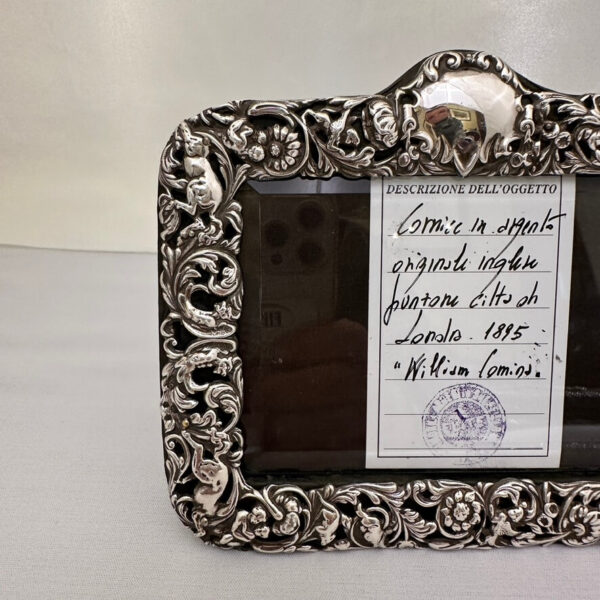 DESCRIZIONE DELL'OGGETTO
Cornice in argento
originale inglese
punzone città di
Londra. 1895.
"William Comins.